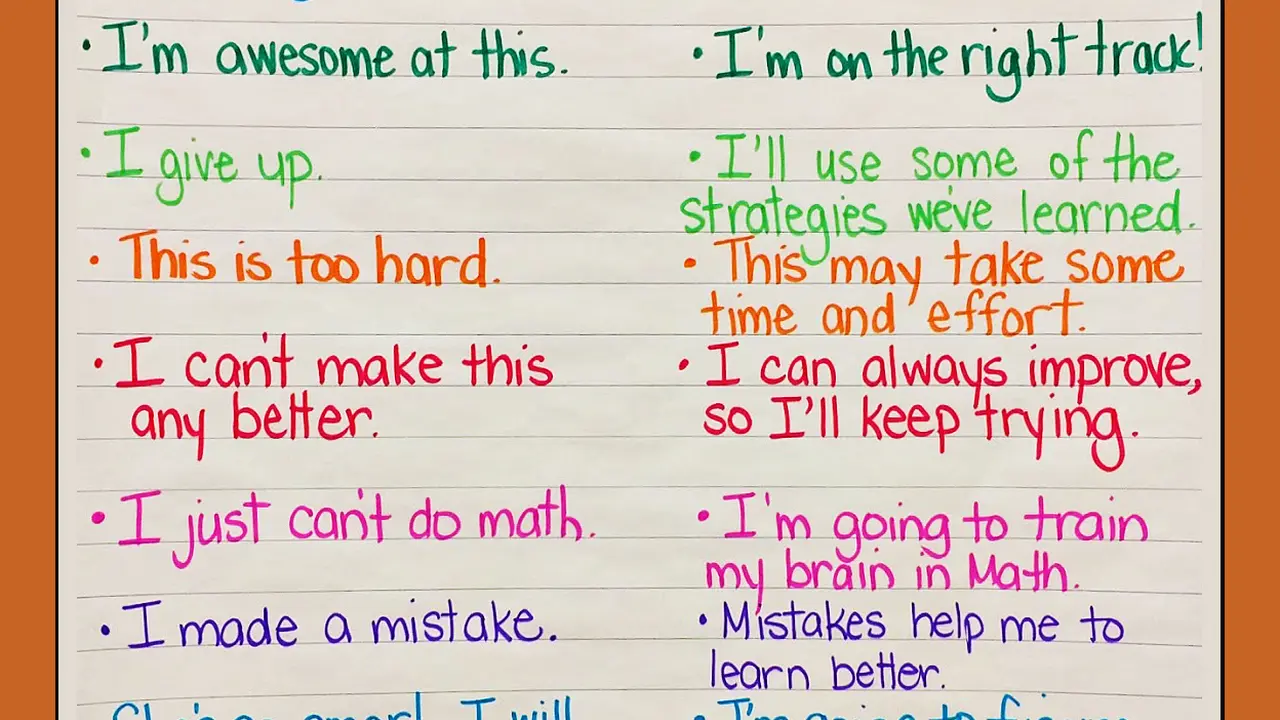 • I'm awesome at this.
• I'm on the right track!
• I give up.
• I'll use some of the
strategies we've learned.
• This is too hard.
• This may take some
time and effort.
• I can't make this
any better.
• I can always improve,
so I'll keep trying.
• I just can't do math.
• I'm going to train
my brain in Math.
• I made a mistake.
• Mistakes help me to
learn better.
She's so smart. I will
• I'm going to figure